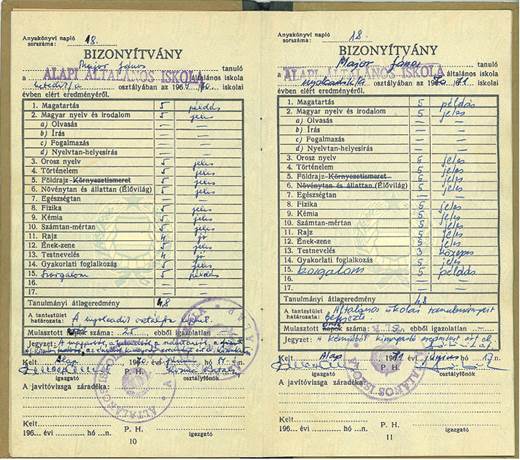 Anyakönyvi napló
sorszáma: 18.
BIZONYÍTVÁNY
Major János tanuló
a ALAPI ÁLTALÁNOS ISKOLA általános iskola
osztályában az 196 iskolai
évben elért eredményéről.
1. Magatartás 5 példás
2. Magyar nyelv és irodalom 5 jeles
a) Olvasás —
b) Írás —
c) Fogalmazás —
d) Nyelvtan-helyesírás —
3. Orosz nyelv 5 jeles
4. Történelem 5 jeles
5. Földrajz-Környezetismeret 5 jeles
6. Növénytan és állattan (Élővilág) 5 jeles
7. Egészségtan —
8. Fizika 5 jeles
9. Kémia 5 jeles
10. Számtan-mértan 5 jeles
11. Rajz 4 jó
12. Ének-zene 5 jeles
13. Testnevelés 4 jó
14. Gyakorlati foglalkozás 5 jeles
15. Szorgalom 5 példás
16.
17.
Tanulmányi átlageredmény 4,8
A tantestület
határozata: A nyolcadik osztályba léphet.
Mulasztott napok száma: 25 ebből igazolatlan —
Jegyzet:
Kelt Alap
P. H.
igazgató osztályfőnök
A javítóvizsga záradéka:
Kelt
196... évi hó n. P. H.
igazgató
10
Anyakönyvi napló
sorszáma: 18.
BIZONYÍTVÁNY
Major János tanuló
a ALAPI ÁLTALÁNOS ISKOLA általános iskola
nyolcadik osztályában az 71 iskolai
évben elért eredményéről.
1. Magatartás 5 példás
2. Magyar nyelv és irodalom 5 jeles
a) Olvasás —
b) Írás —
c) Fogalmazás —
d) Nyelvtan-helyesírás —
3. Orosz nyelv 5 jeles
4. Történelem 5 jeles
5. Földrajz-Környezetismeret 5 jeles
6. Növénytan és állattan (Élővilág) 5 jeles
7. Egészségtan —
8. Fizika 5 jeles
9. Kémia 5 jeles
10. Számtan-mértan 5 jeles
11. Rajz 5 jeles
12. Ének-zene 5 jeles
13. Testnevelés 3 közepes
14. Gyakorlati foglalkozás 5 jeles
15. Szorgalom 5 példás
16.
17.
Tanulmányi átlageredmény 4,8
A tantestület
határozata: Általános iskolai tanulmányait
befejezte.
Mulasztott száma: ebből igazolatlan —
Jegyzet:
Kelt Alap 1971 évi június hó n.
P. H.
igazgató osztályfőnök
A javítóvizsga záradéka:
Kelt
196... évi hó n. P. H.
igazgató
11